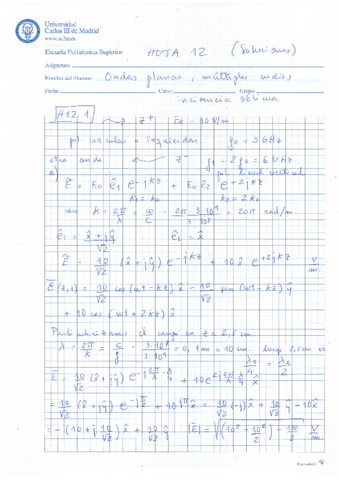 Universidad
Carlos III de Madrid
www.uc3m.es
Escuela Politécnica Superior
HOJA 12 (Soluciones)
Asignatura
Nombre del Alumno Ondas planas, múltiples medios,
Fecha Curso Grupo
incidencia oblicua
H12.1 z+ E0 = 10 V/m
pol circular a izquierdas f0 = 3 GHz
otra onda z- f1 = 2f0 = 6 GHz
pol. lineal vertical
a) E = E0 ê1 e^-jkz + E0 ê2 e^+2jkz
k1 = k0 k2 = 2k0
con k = 2π/λ = ω/c = 2π 3·10^9 / 3·10^8 = 20π rad/m
ê1 = (x̂ + jŷ)/√2 ê2 = x̂
E = 10/√2 (x̂ + jŷ) e^-jkz + 10 x̂ e^+2jkz V/m
E(z,t) = 10/√2 cos(ωt - kz) x̂ - 10/√2 sen(ωt - kz) ŷ
+ 10 cos(ωt + 2kz) x̂
Particularizamos el campo en z = 2,5 cm
λ = 2π/k = c/f = 3·10^8 / 3·10^9 = 0,1 m = 10 cm. luego 2,5 cm es
λ0/4 = λ1/2
E = 10/√2 (x̂ + jŷ) e^-j 2π/λ · λ/4 + 10 e^2j 2π/λ · λ/4 x̂
= 10/√2 (x̂ + jŷ) e^-jπ/2 + 10 e^jπ x̂ = 10/√2 (-j) x̂ + 10/√2 ŷ - 10 x̂
= -(10 + j 10/√2) x̂ + 10/√2 ŷ